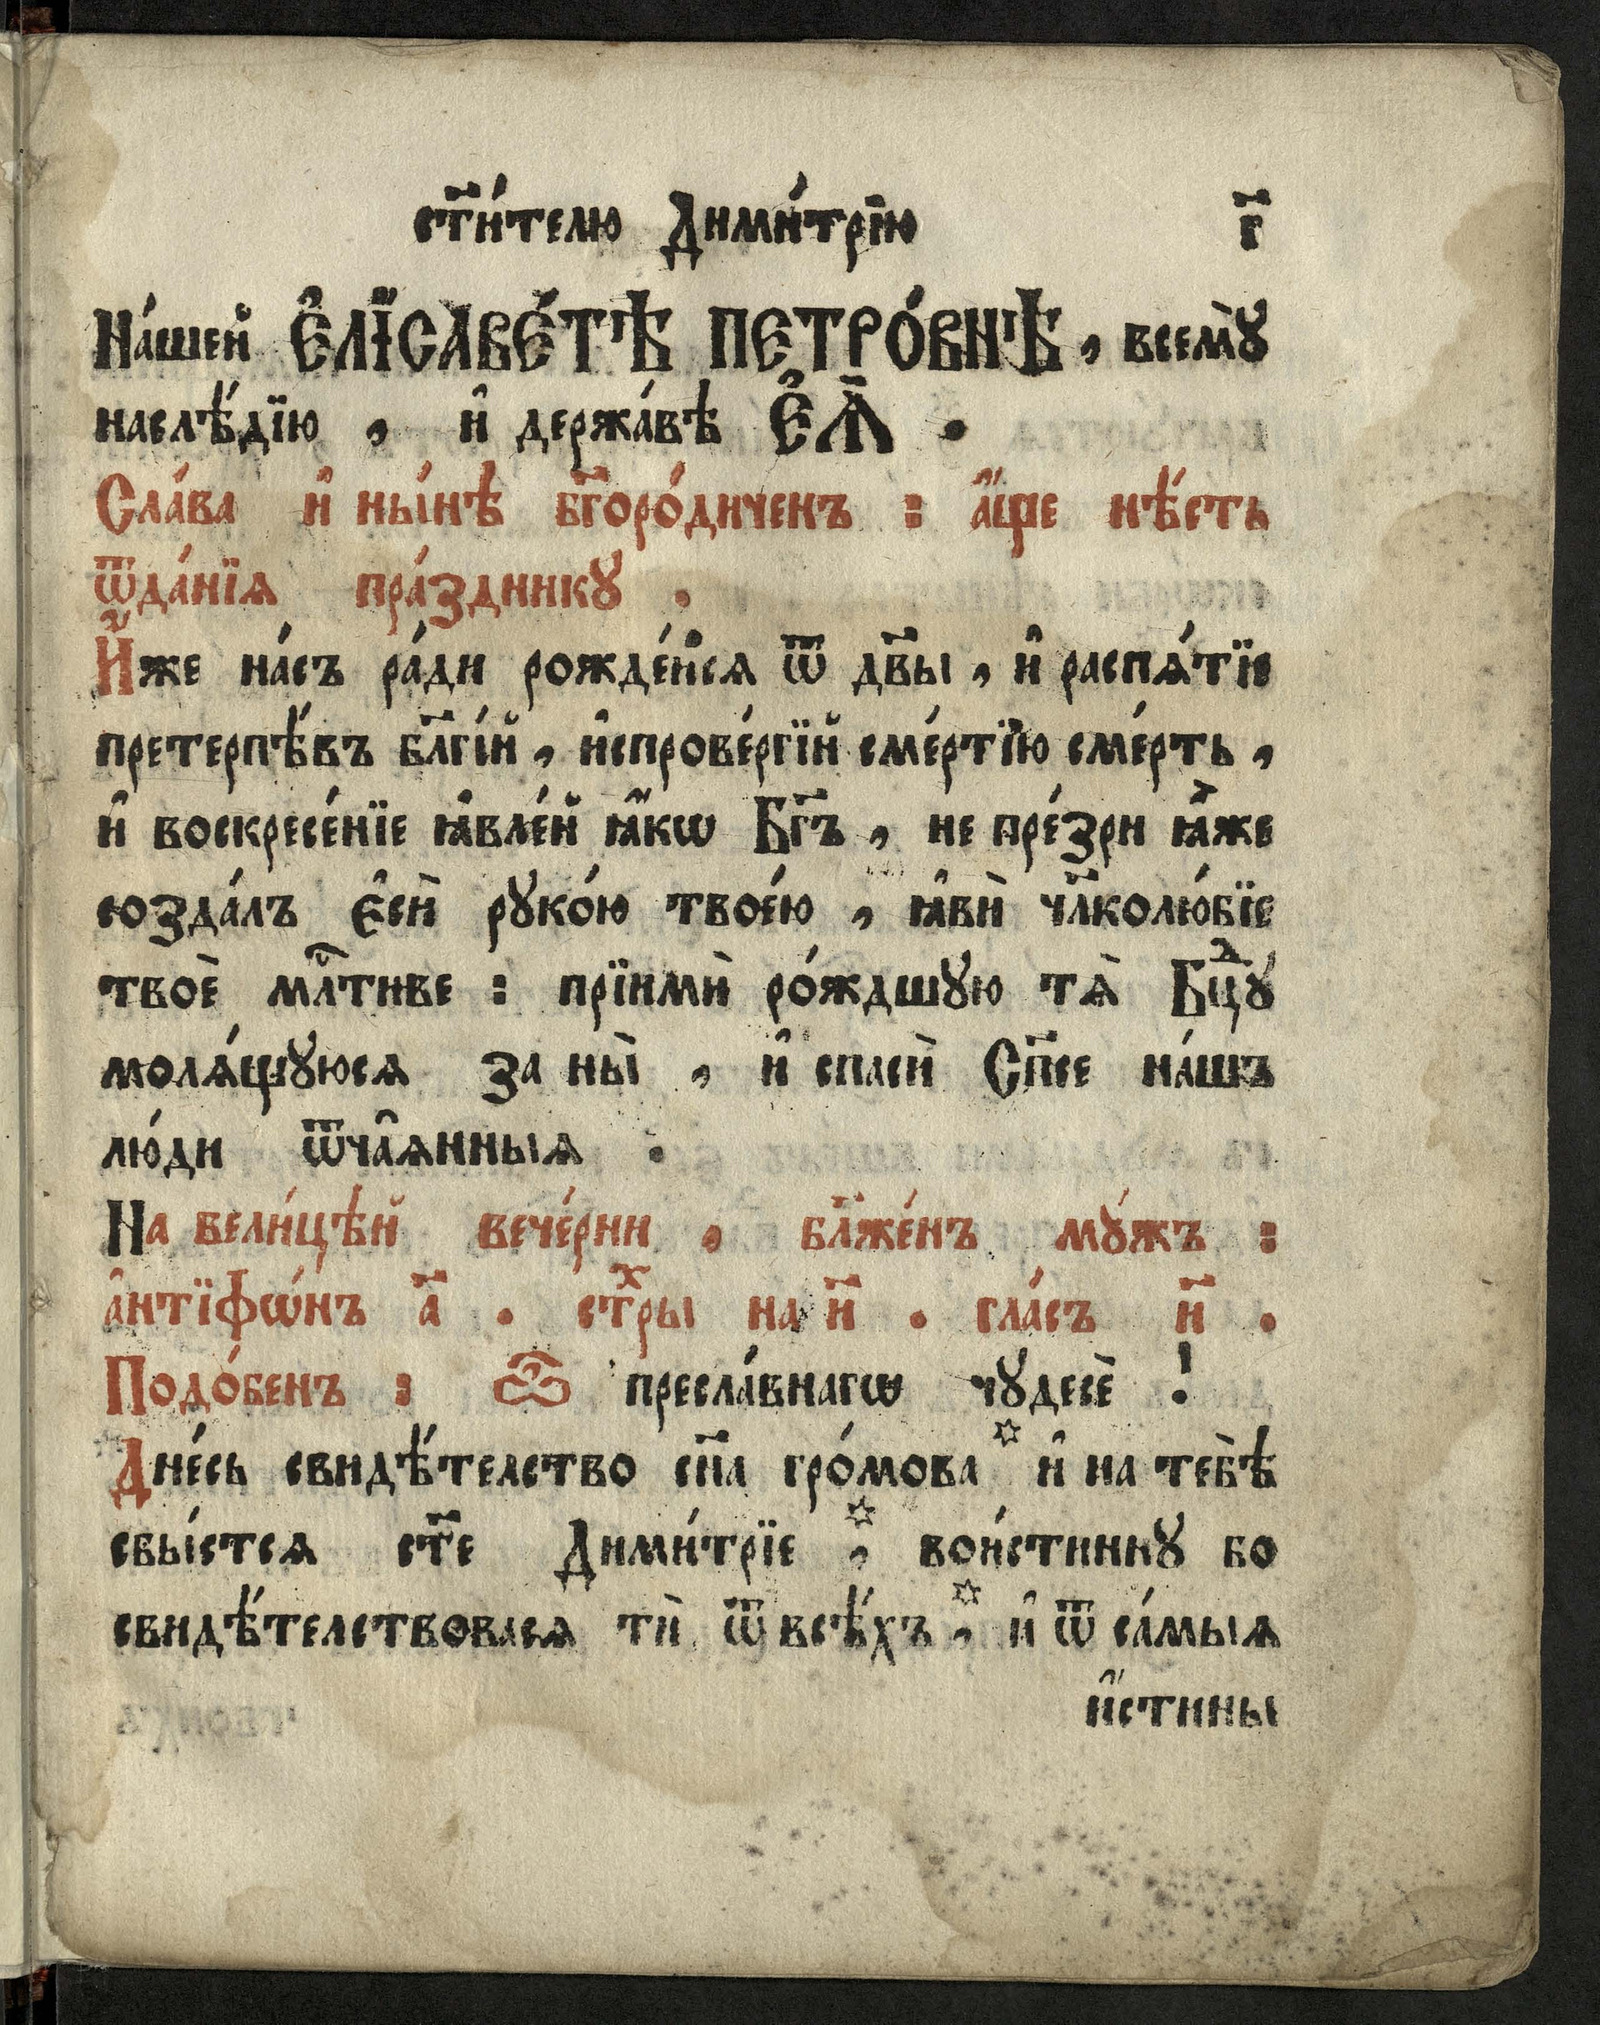 ст҃и́телю Дими́трїю г҃
На́шей Є҆лїсаве́тѣ Петро́внѣ , всемꙋ̀
наслѣ́дїю , и҆ держа́вѣ Є҆ѧ̀ .
Сла́ва и҆ ны́нѣ бг҃оро́диченъ : а҆́ще нѣ́сть
ѿда́нїѧ пра́здникꙋ .
И҆́же на́съ ра́ди рожде́йсѧ ѿ дв҃ы , и҆ распѧ́тїе
претерпѣ́въ бл҃гі́й , и҆спрове́ргїй сме́ртїю сме́рть ,
и҆ воскресе́нїе ꙗ҆вле́й ꙗ҆́кѡ Бг҃ъ , не пре́зри ꙗ҆̀же
созда́лъ є҆сѝ рꙋко́ю твое́ю , ꙗ҆вѝ чл҃колю́бїе
твоѐ млⷭ҇тиве : прїимѝ ро́ждшꙋю тѧ̀ Бцⷣꙋ
молѧ́щꙋюсѧ за ны̀ , и҆ спасѝ Сп҃се на́шъ
лю́ди ѿча҆ѧнныѧ .
На вели́цѣй вече́рни , бл҃же́нъ мꙋ́жъ :
а҆нтїфѡ́нъ а҃ . стⷯры на и҃ . гла́съ и҃ .
Подо́бенъ : Ѽ пресла́внагѡ чꙋдесѐ !
Дне́сь свидѣ́телство сн҃а гро́мова * и҆ на тебѣ̀
сбы́стсѧ ст҃е Дими́трїе *, вои́стиннꙋ бо
свидѣ́телствовасѧ тѝ ѿ всѣ́хъ *, и҆ ѿ са́мыѧ
и҆́стины